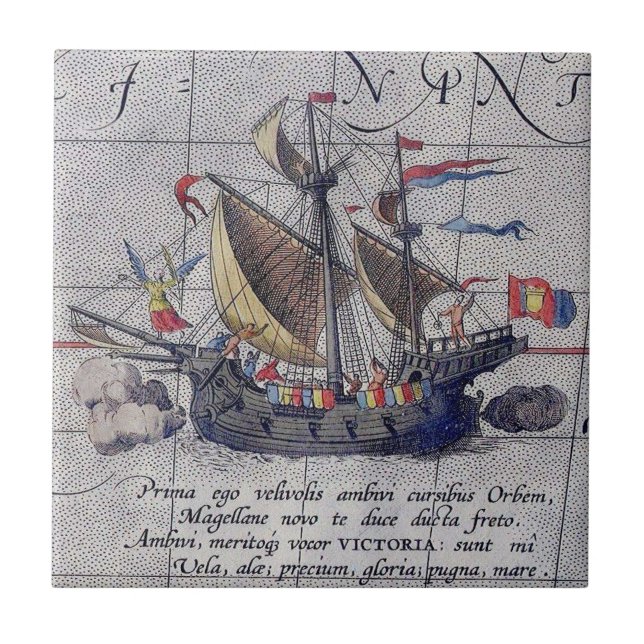 J = NANT
Prima ego velivolis ambivi cursibus Orbem,
Magellane novo te duce ducta freto.
Ambivi, meritoq₃ vocor VICTORIA: sunt mî
Vela, alæ; precium, gloria; pugna, mare.